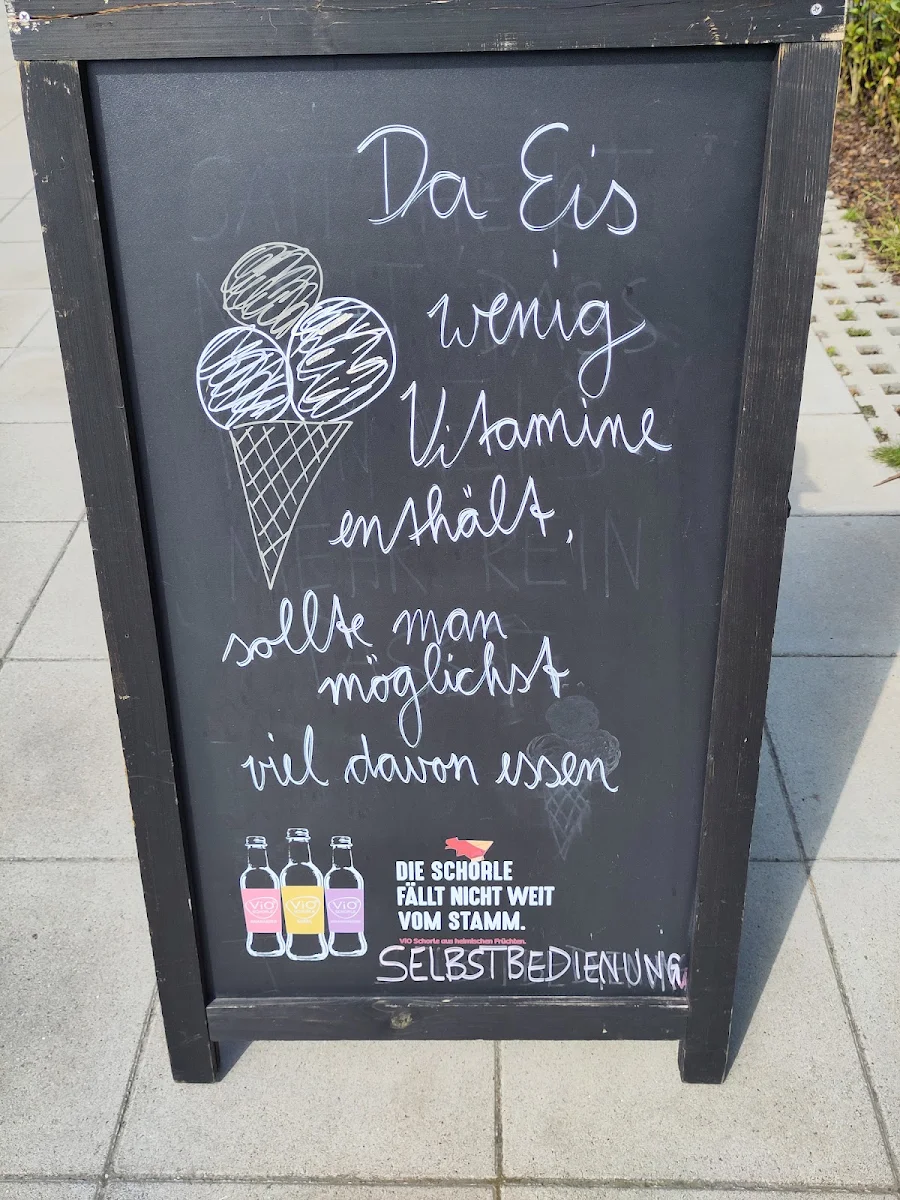 Da Eis
wenig
Vitamine
enthält,
sollte man
möglichst
viel davon essen
ViO ViO ViO
DIE SCHORLE
FÄLLT NICHT WEIT
VOM STAMM.
ViO Schorle aus heimischen Früchten.
SELBSTBEDIENUNG